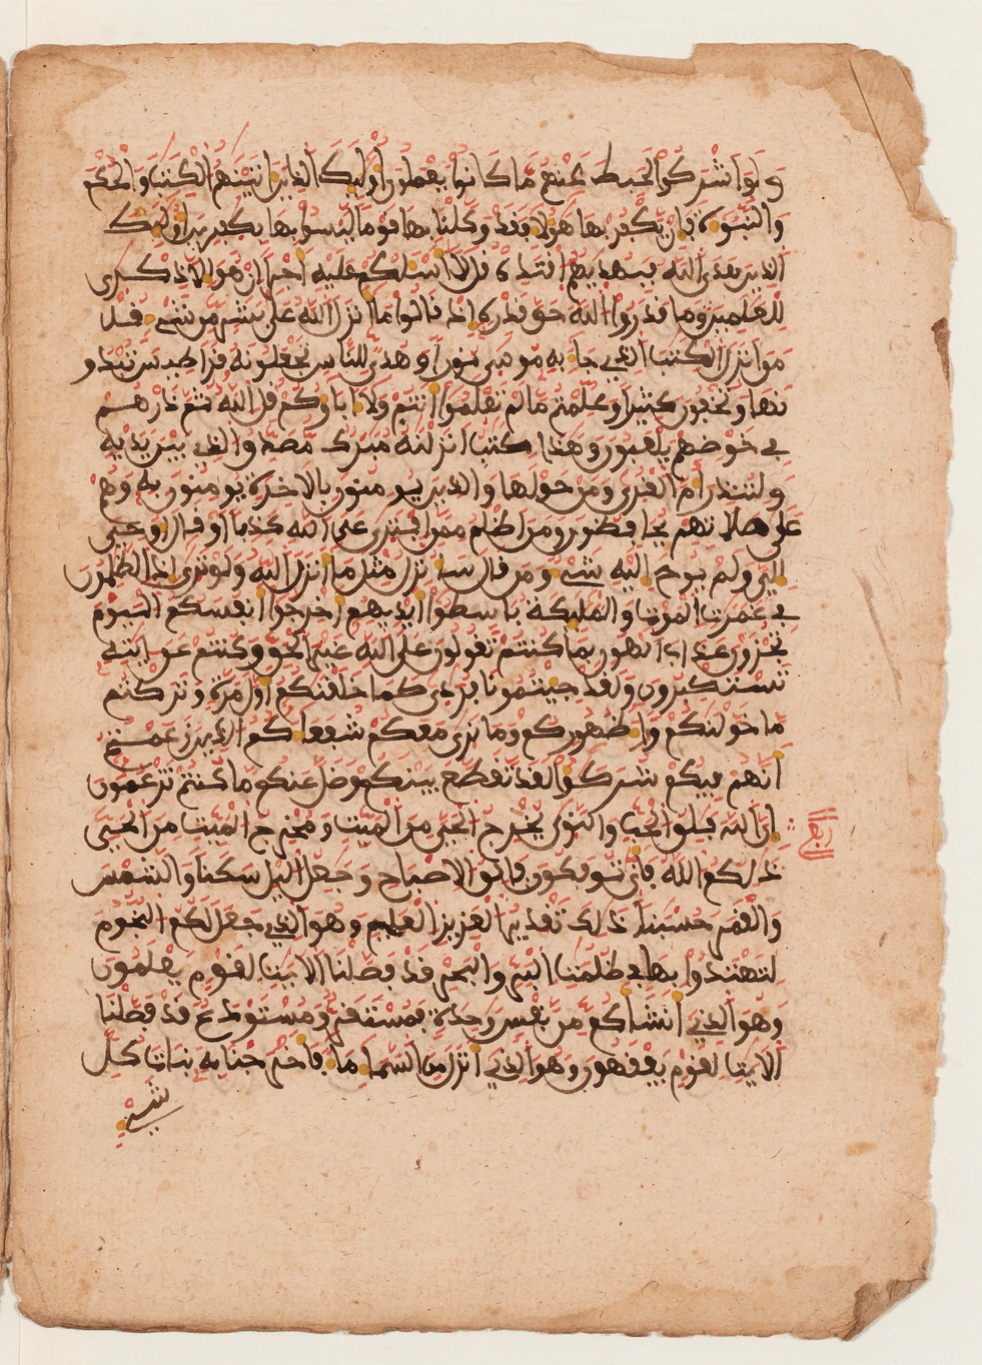 ولو اشركوا لحبط عنهم ما كانوا يعملون اوليك الذين اتينهم الكتب والحكم
والنبوة فان يكفر بها هولا فقد وكلنا بها قوما ليسوا بها بكفرين اوليك
الذين هدى الله فبهديهم افتده فل لا اسلكم عليه اجرا ان هو الا ذكرى
للعلمين وما قدروا الله حق قدره اذ قالوا ما انزل الله على بشر من شيء قل
من انزل الكتب الذي جا به موسى نورا وهدى للناس تجعلونه قراطيس تبدو
نها وتخفون كثيرا وعلمتم ما لم تعلموا انتم ولا اباوكم قل الله ثم ذرهم
في خوضهم يلعبون وهذا كتب انزلنه مبرك مصدق الذي بين يديه
ولتنذر ام القرى ومن حولها والذين يومنون بالاخرة يومنون به وهم
على صلاتهم يحافظون ومن اظلم ممن افترى على الله كذبا او قال اوحي
الي ولم يوح اليه شيء ومن قال سانزل مثل ما انزل الله ولو ترى اذ الظلمون
في غمرت الموت والمليكة باسطوا ايديهم اخرجوا انفسكم اليوم
تجزون عذاب الهون بما كنتم تقولون على الله غير الحق وكنتم عن ايته
تستكبرون ولقد جيتمونا فردى كما خلقنكم اول مرة وتركتم
ما خولنكم ورا ظهوركم وما نرى معكم شفعاكم الذين زعمتم
انهم فيكم شركوا لقد تقطع بينكم وضل عنكم ما كنتم تزعمون
ان الله فلق الحب والنوى يخرج الحي من الميت ومخرج الميت من الحي
ربع
ذلكم الله فانى توفكون فالق الاصباح وجعل اليل سكنا والشمس
والقمر حسبنا ذلك تقدير العزيز العليم وهو الذي جعل لكم النجوم
لتهتدوا بها في ظلمت البر والبحر قد فصلنا الايت لقوم يعلمون
وهو الذي انشاكم من نفس وحدة فمستقر ومستودع قد فصلنا
الايت لقوم يفقهون وهو الذي انزل من السما ما فاخرجنا به نبات كل
شيء